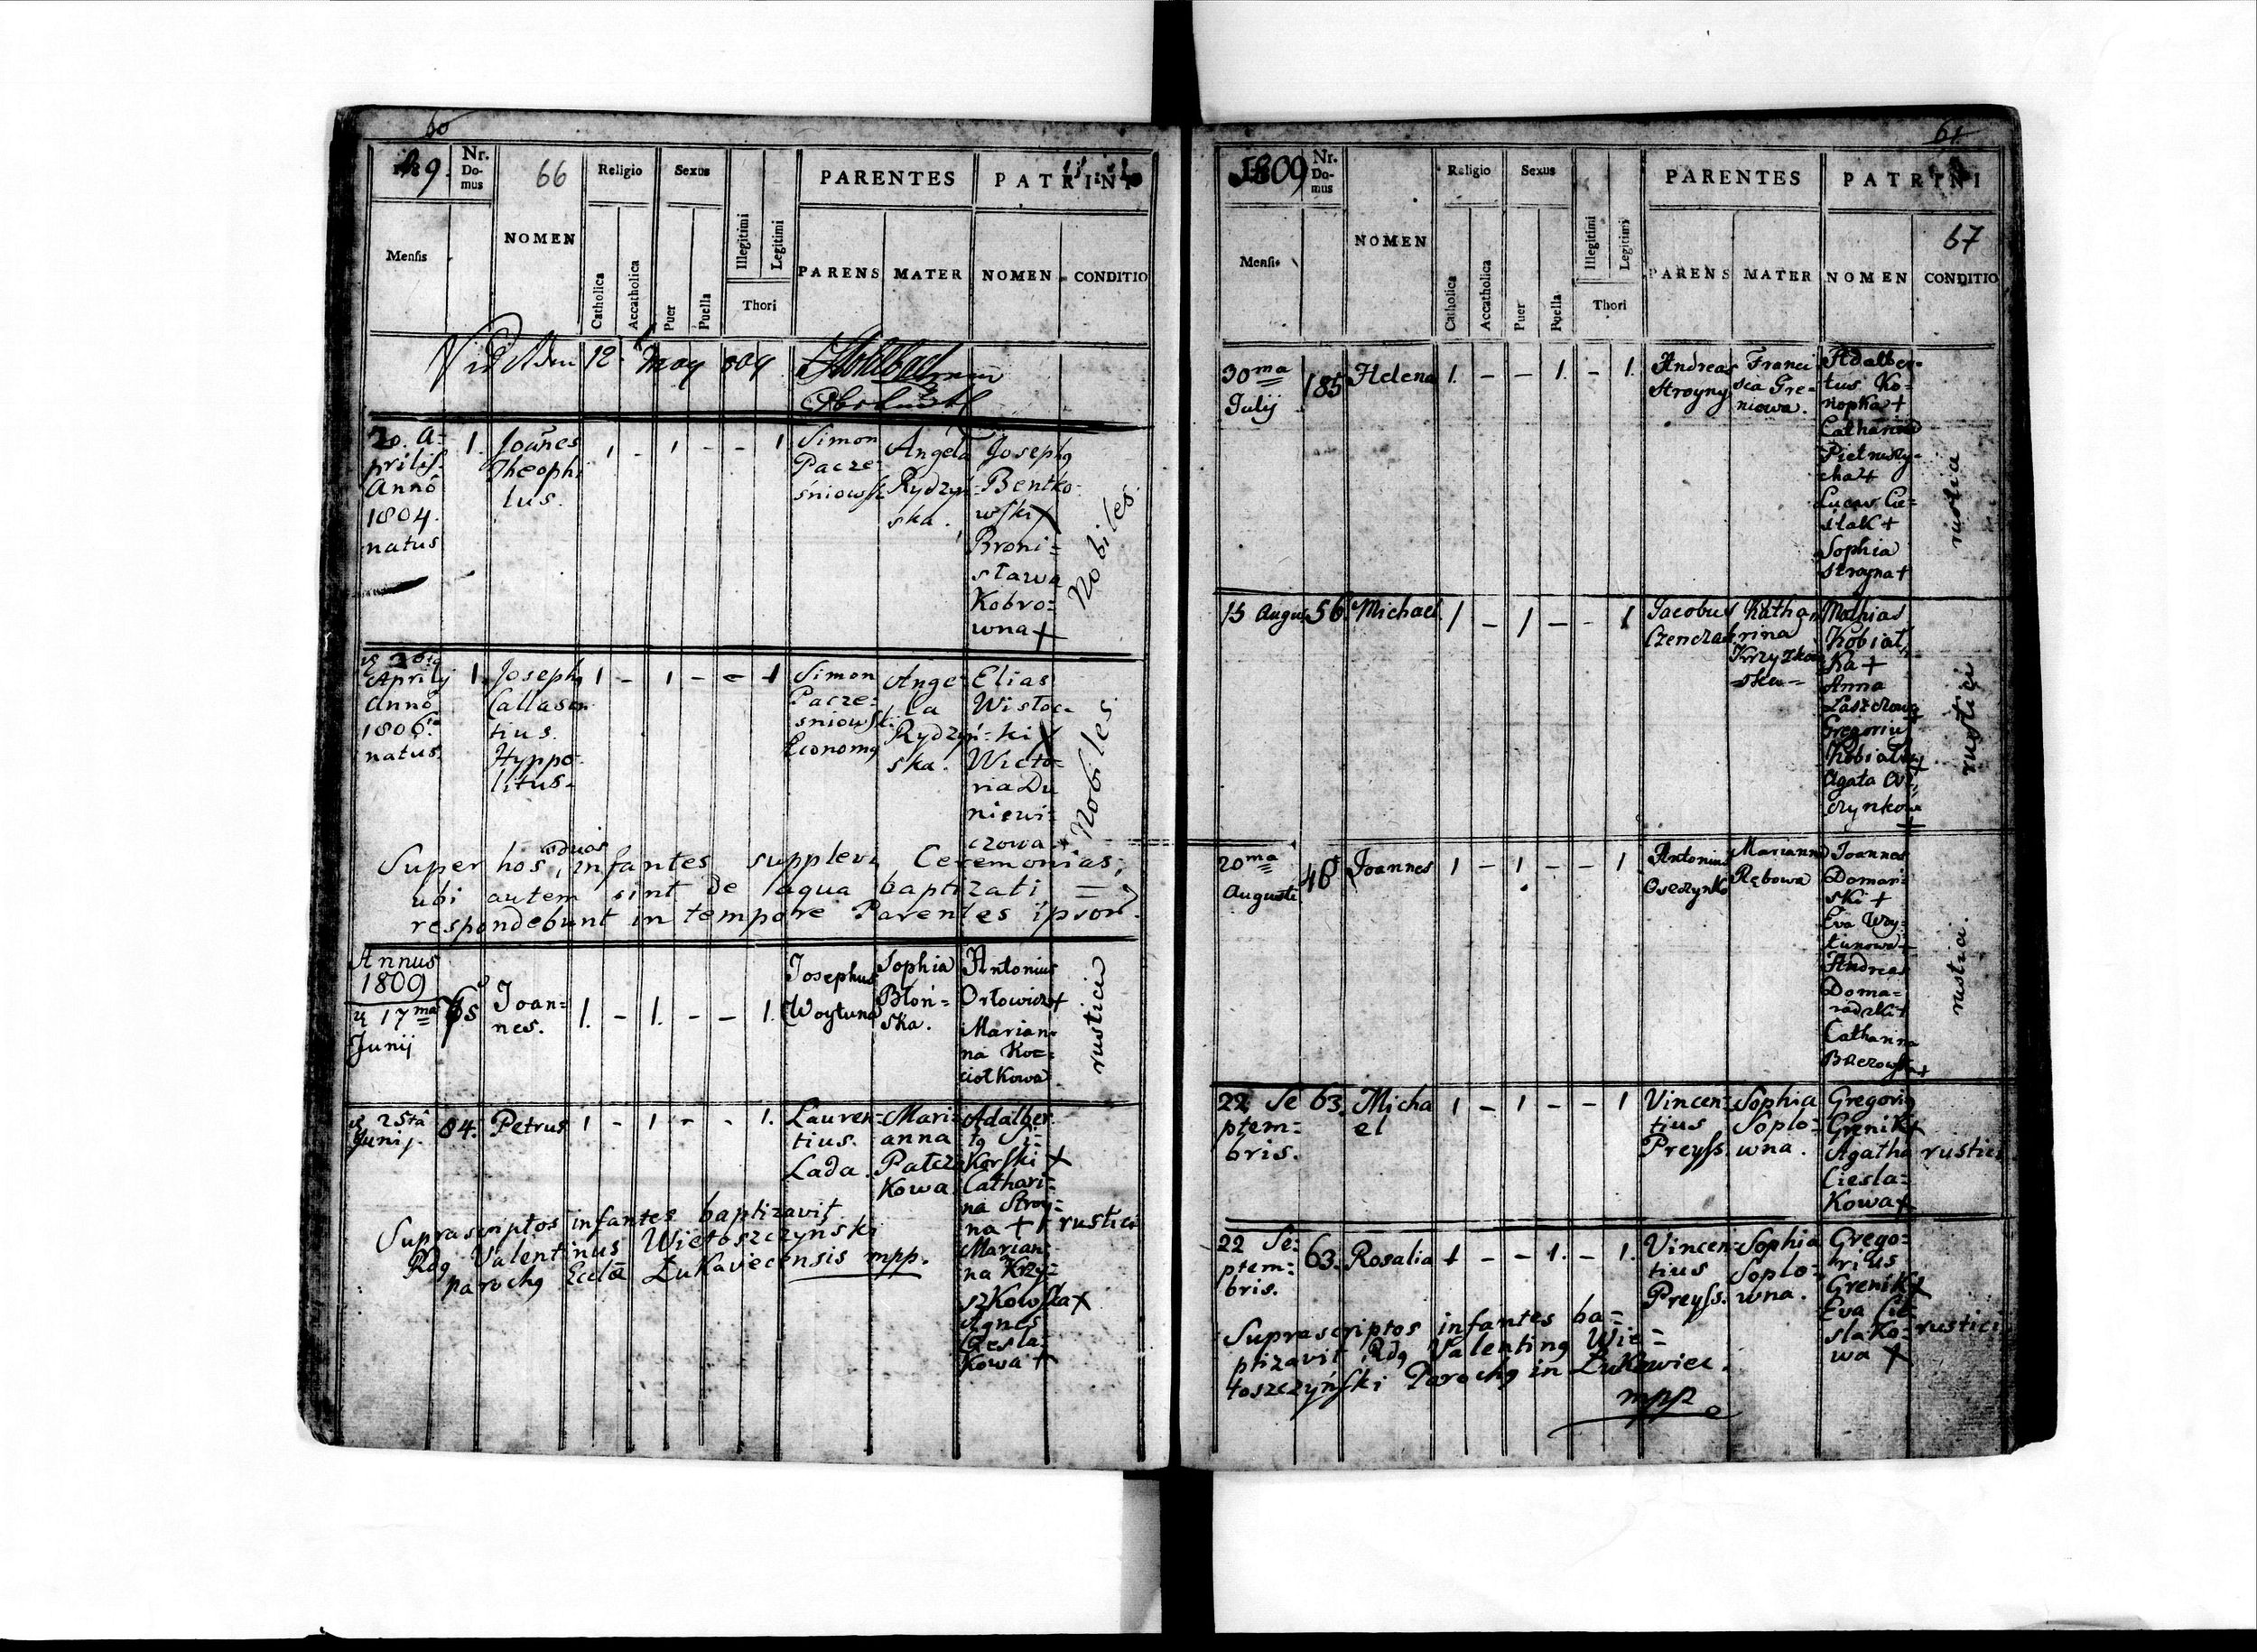 60
1809.
Nr. Domus
66
NOMEN
Religio
Sexus
PARENTES
PATRINI
Mensis
Catholica
Accatholica
Puer
Puella
Illegitimi
Legitimi
Thori
PARENS
MATER
NOMEN
CONDITIO
12 May 809
20. A=
prilis
Anno
1804.
natus
1.
Joañes
Theophi
lus.
1 - 1 - - 1
Simon
Pacze
śniowski
Angela
Rydzyń
ska.
Joseph9
Bentko
wski +
Broni=
sława
Kobro=
wna +
Nobiles.
Aprilij
Anno
1806
natus.
1.
Joseph9
Callasan
tius.
Hyppo
litus.
1 - 1 - - 1
Simon
Pacze=
śniowski
Econom9
Ange
la
Rydzyń
ska.
Elias
Wisłoc
ki +
Wicto=
ria Du
niewi
czowa +
Nobiles
Super hos duos infantes supplevi Ceremonias,
ubi autem sint de aqua baptizati =
respondebunt in tempore Parentes ipsor.
Annus
1809
17ma
Junij
Joan=
nes.
1. - 1. - - 1.
Josephus
Woytuna
Sophia
Błoń=
ska.
Antonius
Orłowicz +
Marian
na Koc=
ciołkowa
rustici
25ta
Junij.
84.
Petrus
1 - 1 - - 1.
Lauren=
tius.
Lada.
Mari=
anna
Pałcza
Kowa
Adalber
t9 Si=
Korski +
Cathari=
na Stroy=
na +
Marian
na Krzy=
szkowska +
Agnes
Ciesla=
Kowa +
rustici
Suprascriptos infantes baptizavit
Rd9 Valentinus Wietoszczyński
paroch9 Eccłæ Łukaviecensis mpp.
61
1809
Nr. Domus
NOMEN
Religio
Sexus
PARENTES
PATRINI
67
Mensis
Catholica
Accatholica
Puer
Puella
Illegitimi
Legitimi
Thori
PARENS
MATER
NOMEN
CONDITIO
30ma
Julij
185
Helena
1. - - 1. - 1.
Andreas
Stroyny
Franci
sca Gre=
niowa.
Adalber=
tus Ko=
nopka +
Catharina
Pietruszy=
cha +
Lucas Cie=
slak +
Sophia
Stroyna +
rustici
15 Augus
56.
Michael.
1 - 1 - - 1
Jacobus
Katha
rina
Krzyszkow
ska
Mathias
Kobiał
Ka +
Anna
Gregorius
Agata
rustici
20ma
Augusti
48
Joannes
1 - 1 - - 1
Antonius
Marianna
Rębowa
Joannes
Doman=
ski +
Eva Woy=
tunowa +
Andreas
Doma=
radzki +
Catharina
rustici.
22 Se
ptem=
bris.
63.
Micha
el
1 - 1 - - 1
Vincen=
tius
Preyss.
Sophia
Soplo=
wna.
Gregori9
Grenik +
Agatha
Ciesla=
Kowa +
rustici.
22 Se=
ptem=
bris.
63.
Rosalia
1 - - 1. - 1.
Vincen=
tius
Preyss.
Sophia
Soplo=
wna.
Grego=
rius
Grenik +
Eva Cie
slako=
wa +
rustici
Suprascriptos infantes ba=
ptizavit Rd9 Valentin9 Wie=
toszczyński Paroch9 in Łukawiec.
mpp